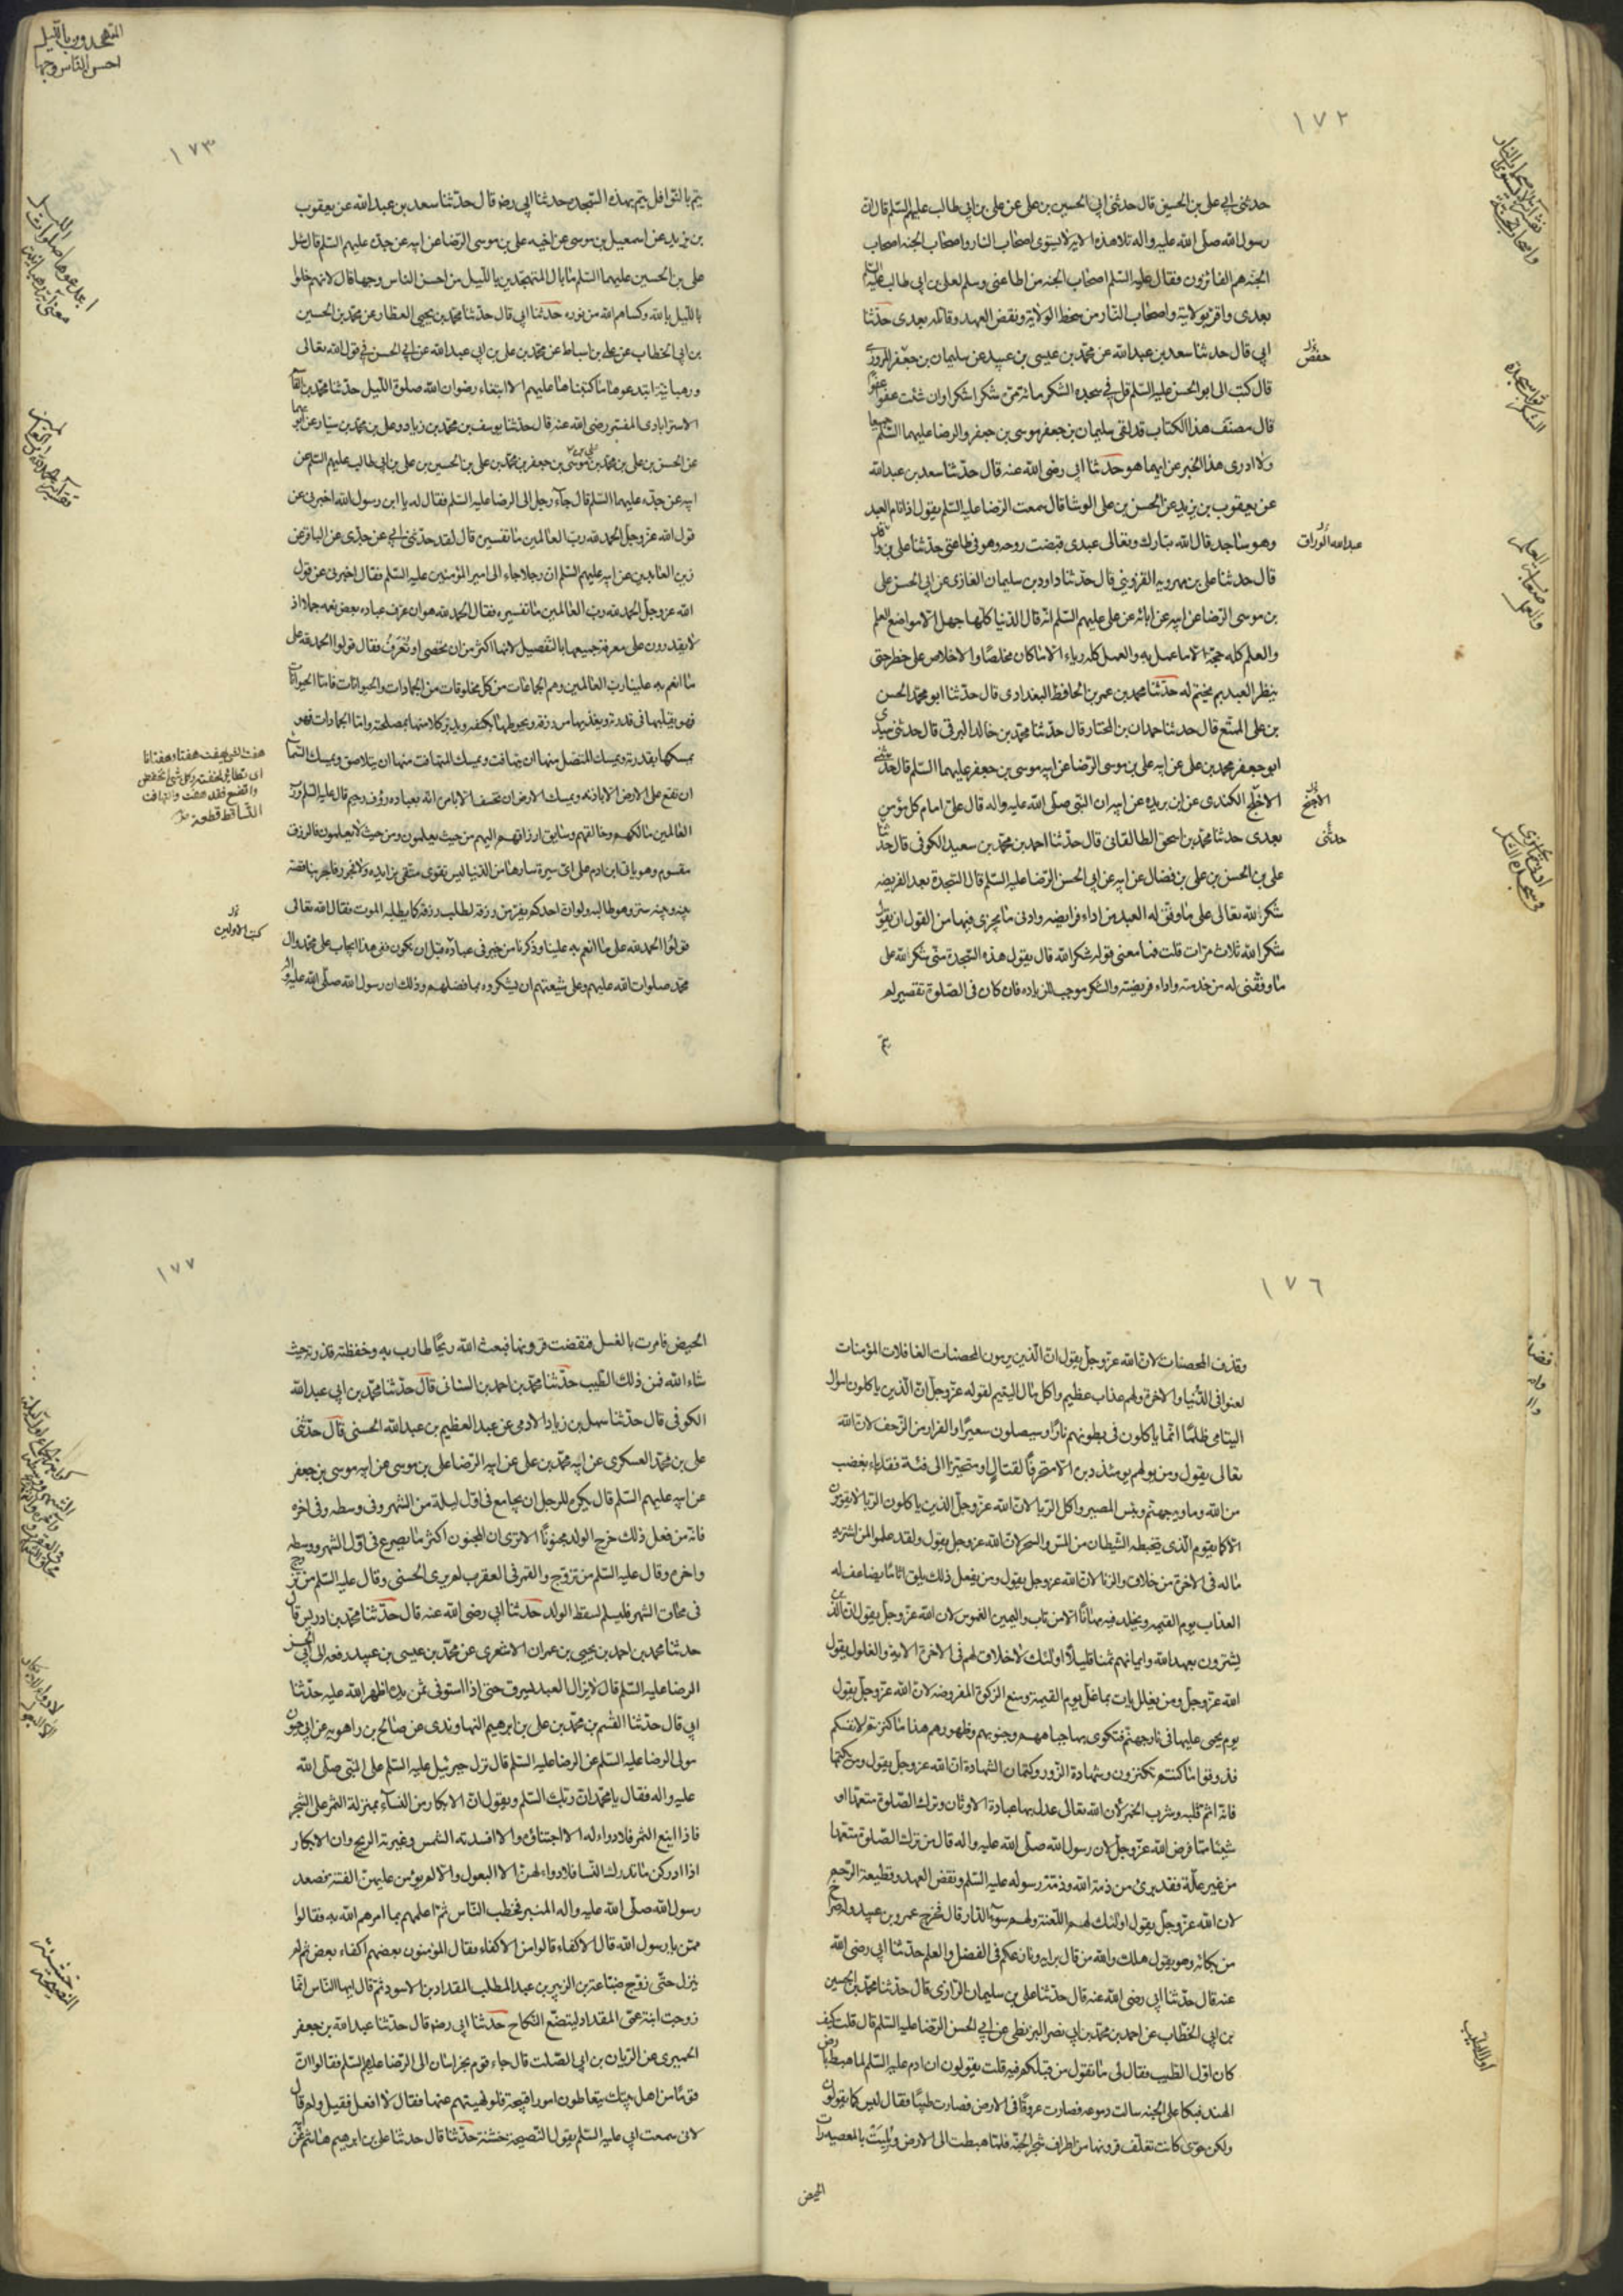 ١٧٢
حدثنى ابى على بن الحسين قال حدثنى ابى الحسين بن على عن على بن ابى طالب عليهم السلم قال ان
رسول الله صلى الله عليه واله تلا هذه الاية لا يستوى اصحاب النار واصحاب الجنه اصحاب
الجنه هم الفائزون فقال عليه السلم اصحاب الجنه من اطاعنى وسلم لعلى بن ابى طالب عليه السلم
بعدى واقر بولايته واصحاب النار من سخط الولاية ونقض العهد وقاتله بعدى حدثنا
ابى قال حدثنا سعد بن عبدالله عن محمد بن عيسى بن عبيد عن سليمان بن جعفر المروزى
حفص
قال كتب الى ابو الحسن عليه السلم قل فى سجدة الشكر مائة مرة شكرا شكرا وان شئت عفوا عفوا
قال مصنف هذا الكتاب قد لقى سليمان بن جعفر موسى بن جعفر والرضا عليهما السلم جميعا
ولا ادرى هذا الخبر عن ايهما هو حدثنا ابى رضى الله عنه قال حدثنا سعد بن عبدالله
عن يعقوب بن يزيد عن الحسن بن على الوشا قال سمعت الرضا عليه السلم يقول اذا نام العبد
وهو ساجد قال الله تبارك وتعالى عبدى قبضت روحه وهو فى طاعتى حدثنا على بن
عبدالله الوراق
قال حدثنا على بن مهرويه القزوينى قال حدثنا داود بن سليمان الغازى عن ابى الحسن على
بن موسى الرضا عن ابيه عن ابائه عن على عليهم السلم انه قال الدنيا كلها جهل الا مواضع العلم
والعلم كله حجة الا ما عمل به والعمل كله رياء الا ما كان مخلصا والاخلاص على خطر حتى
ينظر العبد بم يختم له حدثنا محمد بن عمر بن الحافظ البغدادى قال حدثنا ابو محمد الحسن
بن على المتمتع قال حدثنا حمدان بن المختار قال حدثنا محمد بن خالد البرقى قال حدثنى سيدى
ابو جعفر محمد بن على عن ابيه على بن موسى الرضا عن ابيه موسى بن جعفر عليهما السلم قال حدثنى
الاخلج الكندى عن ابن بريده عن ابيه ان النبى صلى الله عليه واله قال على امام كل مؤمن
بعدى حدثنا محمد بن اسحق الطالقانى قال حدثنا احمد بن محمد بن سعيد الكوفى قال حدثنا
حدثنى
على بن الحسن بن على بن فضال عن ابيه عن ابى الحسن الرضا عليه السلم قال السجدة بعد الفريضه
شكرا لله تعالى على ما وفق له العبد من اداء فرايضه وادنى ما يجزى فيها من القول ان يقول
شكرا لله ثلاث مرات قلت فما معنى قوله شكرا لله قال يقول هذه السجدة منى شكرا لله على
ما وفقنى له من خدمته واداء فريضته والشكر موجب للزيادة فان كان فى الصلوة تقصير لم
يتم
المتهجدون بالليل
احسن الناس وجها
١٧٣
يتم بالنوافل يتم بهذه السجده حدثنا ابى رضه قال حدثنا سعد بن عبدالله عن يعقوب
بن يزيد عن اسمعيل بن موسى عن اخيه على بن موسى الرضا عن ابيه عن جده عليهم السلم قال سئل
على بن الحسين عليهما السلم ما بال المتهجدين بالليل من احسن الناس وجها قال لانهم خلوا
بالليل بالله وكساهم الله من نوره حدثنا ابى قال حدثنا محمد بن يحيى العطار عن محمد بن الحسين
بن ابى الخطاب عن على بن اسباط عن محمد بن على بن ابى عبدالله عن ابى الحسن فى قول الله تعالى
ورهبانية ابتدعوها ما كتبناها عليهم الا ابتغاء رضوان الله صلوة الليل حدثنا محمد بن القاسم
الاسترابادى المفسر رضى الله عنه قال حدثنا يوسف بن محمد بن زياد وعلى بن محمد بن سيار عن ابويهما
عن الحسن بن على بن محمد بن موسى بن جعفر بن محمد بن على بن الحسين بن على بن ابى طالب عليهم السلم عن
ابيه عن جده عليهما السلم قال جآء رجل الى الرضا عليه السلم فقال له يا ابن رسول الله اخبرنى عن
قول الله عز وجل الحمد لله رب العالمين ما تفسيره قال لقد حدثنى ابى عن جدى عن الباقر عن
زين العابدين عن ابيه عليهم السلم ان رجلا جاء الى امير المؤمنين عليه السلم فقال اخبرنى عن قول
الله عز وجل الحمد لله رب العالمين ما تفسيره فقال الحمد لله هو ان عرف عباده بعض نعمه جملا اذ
لا يقدرون على معرفة جميعها بالتفصيل لانها اكثر من ان تحصى او تعرف فقال قولوا الحمد لله على
ما انعم به علينا رب العالمين وهم الجماعات من كل مخلوقات من الجمادات والحيوانات فاما الحيوانات
فهو يقلبها فى قدرته ويغذيها من رزقه ويحوطها بكنفه ويدبر كلا منها بمصلحته واما الجمادات فهو
يمسكها بقدرته ويمسك المتصل منها ان يتهافت ويمسك المتهافت منها ان يتلاصق ويمسك السماء
ان تقع على الارض الا باذنه ويمسك الارض ان تخسف الا بامره انه بعباده رؤف رحيم قال عليه السلم ورب
العالمين مالكهم وخالقهم وسايق ارزاقهم اليهم من حيث يعلمون ومن حيث لا يعلمون فالرزق
مقسوم وهو ياتى ابن ادم على اى سيرة سارها من الدنيا ليس تقوى متقى بزايده ولا فجور فاجر بناقصه
بينه وبينه ستر وهو طالبه ولو ان احدكم يفر من رزقه لطلبه رزقه كما يطلبه الموت فقال الله تعالى
كتب الاولين
قولوا الحمد لله على ما انعم به علينا وذكرنا من خير فى عباده قبل ان نكون ففى هذا ايجاب على محمد وال
محمد صلوات الله عليهم وعلى شيعتهم ان يشكروه بما فضلهم وذلك ان رسول الله صلى الله عليه واله
١٧٦
وقذف المحصنات لان الله عز وجل يقول ان الذين يرمون المحصنات الغافلات المؤمنات
لعنوا فى الدنيا والاخرة ولهم عذاب عظيم واكل مال اليتيم لقوله عز وجل ان الذين ياكلون اموال
اليتامى ظلما انما ياكلون فى بطونهم نارا وسيصلون سعيرا والفرار من الزحف لان الله
تعالى يقول ومن يولهم يومئذ دبره الا متحرفا لقتال او متحيزا الى فئة فقد باء بغضب
من الله وماويه جهنم وبئس المصير واكل الربا لان الله عز وجل الذين ياكلون الربا لا يقومون
الا كما يقوم الذى يتخبطه الشيطان من المس والسحر لان الله عز وجل يقول ولقد علموا لمن اشتريه
ما له فى الاخرة من خلاق والزنا لان الله عز وجل يقول ومن يفعل ذلك يلق اثاما يضاعف له
العذاب يوم القيمه ويخلد فيه مهانا الا من تاب واليمين الغموس لان الله عز وجل يقول ان الذين
يشترون بعهد الله وايمانهم ثمنا قليلا اولئك لا خلاق لهم فى الاخرة الاية والغلول يقول
الله عز وجل ومن يغلل يات بما غل يوم القيمة ومنع الزكوة المفروضه لان الله عز وجل يقول
يوم يحمى عليها فى نار جهنم فتكوى بها جباههم وجنوبهم وظهورهم هذا ما كنزتم لانفسكم
فذوقوا ما كنتم تكنزون وشهادة الزور وكتمان الشهادة ان الله عز وجل يقول ومن يكتمها
فانه اثم قلبه وشرب الخمر لان الله تعالى عدل بها عبادة الاوثان وترك الصلوة متعمدا او
شيئا مما فرض الله عز وجل لان رسول الله صلى الله عليه واله قال من ترك الصلوة متعمدا
من غير علة فقد برئ من ذمة الله وذمة رسوله عليه السلم ونقض العهد وقطيعة الرحم
لان الله عز وجل يقول اولئك لهم اللعنة ولهم سوء الدار قال فخرج عمرو بن عبيد وله صراخ
من بكائه وهو يقول هلك والله من قال برايه ونازعكم فى الفضل والعلم حدثنا ابى رضى الله
عنه قال حدثنا ابى رضى الله عنه قال حدثنا على بن سليمان الرازى قال حدثنا محمد بن الحسين
بن ابى الخطاب عن احمد بن محمد بن ابى نصر البزنطى عن ابى الحسن الرضا عليه السلم قال قلت كيف
كان اول الطيب فقال لى ما تقول من قبلكم فيه قلت يقولون ان ادم عليه السلم لما هبط بارض
الهند فبكا على الجنه سالت دموعه فصارت عروقا فى الارض فصارت طيبا فقال ليس كما يقولون
ولكن حوى كانت تغلف قرونها من اطراف شجر الجنة فلما هبطت الى الارض وبليت بالمعصية رات
الحيض
اول الطيب
١٧٧
الحيض فامرت بالغسل فنقضت قرونها فبعث الله ريحا طارت به وخفظته فذرته حيث
شاء الله فمن ذلك الطيب حدثنا محمد بن احمد بن السنانى قال حدثنا محمد بن ابى عبد الله
الكوفى قال حدثنا سهل بن زياد الادمى عن عبد العظيم بن عبد الله الحسنى قال حدثنى
على بن محمد العسكرى عن ابيه محمد بن على عن ابيه الرضا على بن موسى عن ابيه موسى بن جعفر
عن ابيه عليهم السلم قال يكره للرجل ان يجامع فى اول ليلة من الشهر وفى وسطه وفى اخره
فانه من فعل ذلك خرج الولد مجنونا الا ترى ان المجنون اكثر ما يصرع فى اول الشهر ووسطه
واخره وقال عليه السلم من تزوج والقمر فى العقرب لم ير الحسنى وقال عليه السلم من تزوج
فى محاق الشهر فليسلم لسقط الولد حدثنا ابى رضى الله عنه قال حدثنا محمد بن ادريس قال
حدثنا محمد بن احمد بن يحيى بن عمران الاشعرى عن محمد بن عيسى بن عبيد رفعه الى ابى الحسن
الرضا عليه السلم قال لا يزال العبد يسرق حتى اذا استوفى ثمن يده اظهر الله عليه حدثنا
ابى قال حدثنا القسم بن محمد بن على بن ابرهيم النهاوندى عن صالح بن راهويه عن ابى حيون
مولى الرضا عليه السلم عن الرضا عليه السلم قال نزل جبرئيل عليه السلم على النبى صلى الله
عليه واله فقال يا محمد ان ربك السلم ويقول ان الابكار من النساء بمنزلة الثمر على الشجر
فاذا اينع الثمر فلا دواء له الا اجتنائه والا افسدته الشمس وغيرته الريح وان الابكار
اذا ادركن ما تدرك النسا فلا دواء لهن الا البعول والا لم يؤمن عليهن الفتنة فصعد
رسول الله صلى الله عليه واله المنبر فخطب الناس ثم اعلمهم بما امرهم الله به فقالوا
ممن يا رسول الله قال الاكفاء قالوا من الاكفاء فقال المؤمنون بعضهم اكفاء بعض ثم لم
ينزل حتى زوج ضباعة بن الزبير بن عبد المطلب المقداد بن الاسود ثم قال ايها الناس انما
زوجت ابنة عمى المقداد ليتضع النكاح حدثنا ابى رضه قال حدثنا عبد الله بن جعفر
الحميرى عن الريان بن ابى الصلت قال جاء قوم بخراسان الى الرضا عليه السلم فقالوا ان
قوما من اهل بيتك يتعاطون امورا قبيحة فلو نهيتهم عنها فقال لا افعل فقيل ولم قال
لان سمعت ابى عليه السلم يقول النصيحة خشنة حدثنا قال حدثنا على بن ابرهيم هاشم عن
خشنية
النصيحة